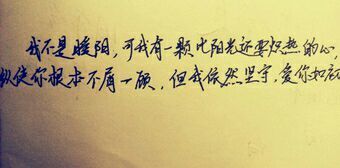 我不是暖阳，可我有一颗比阳光还要炽热的心，
纵使你根本不屑一顾，但我依然坚守，爱你如初